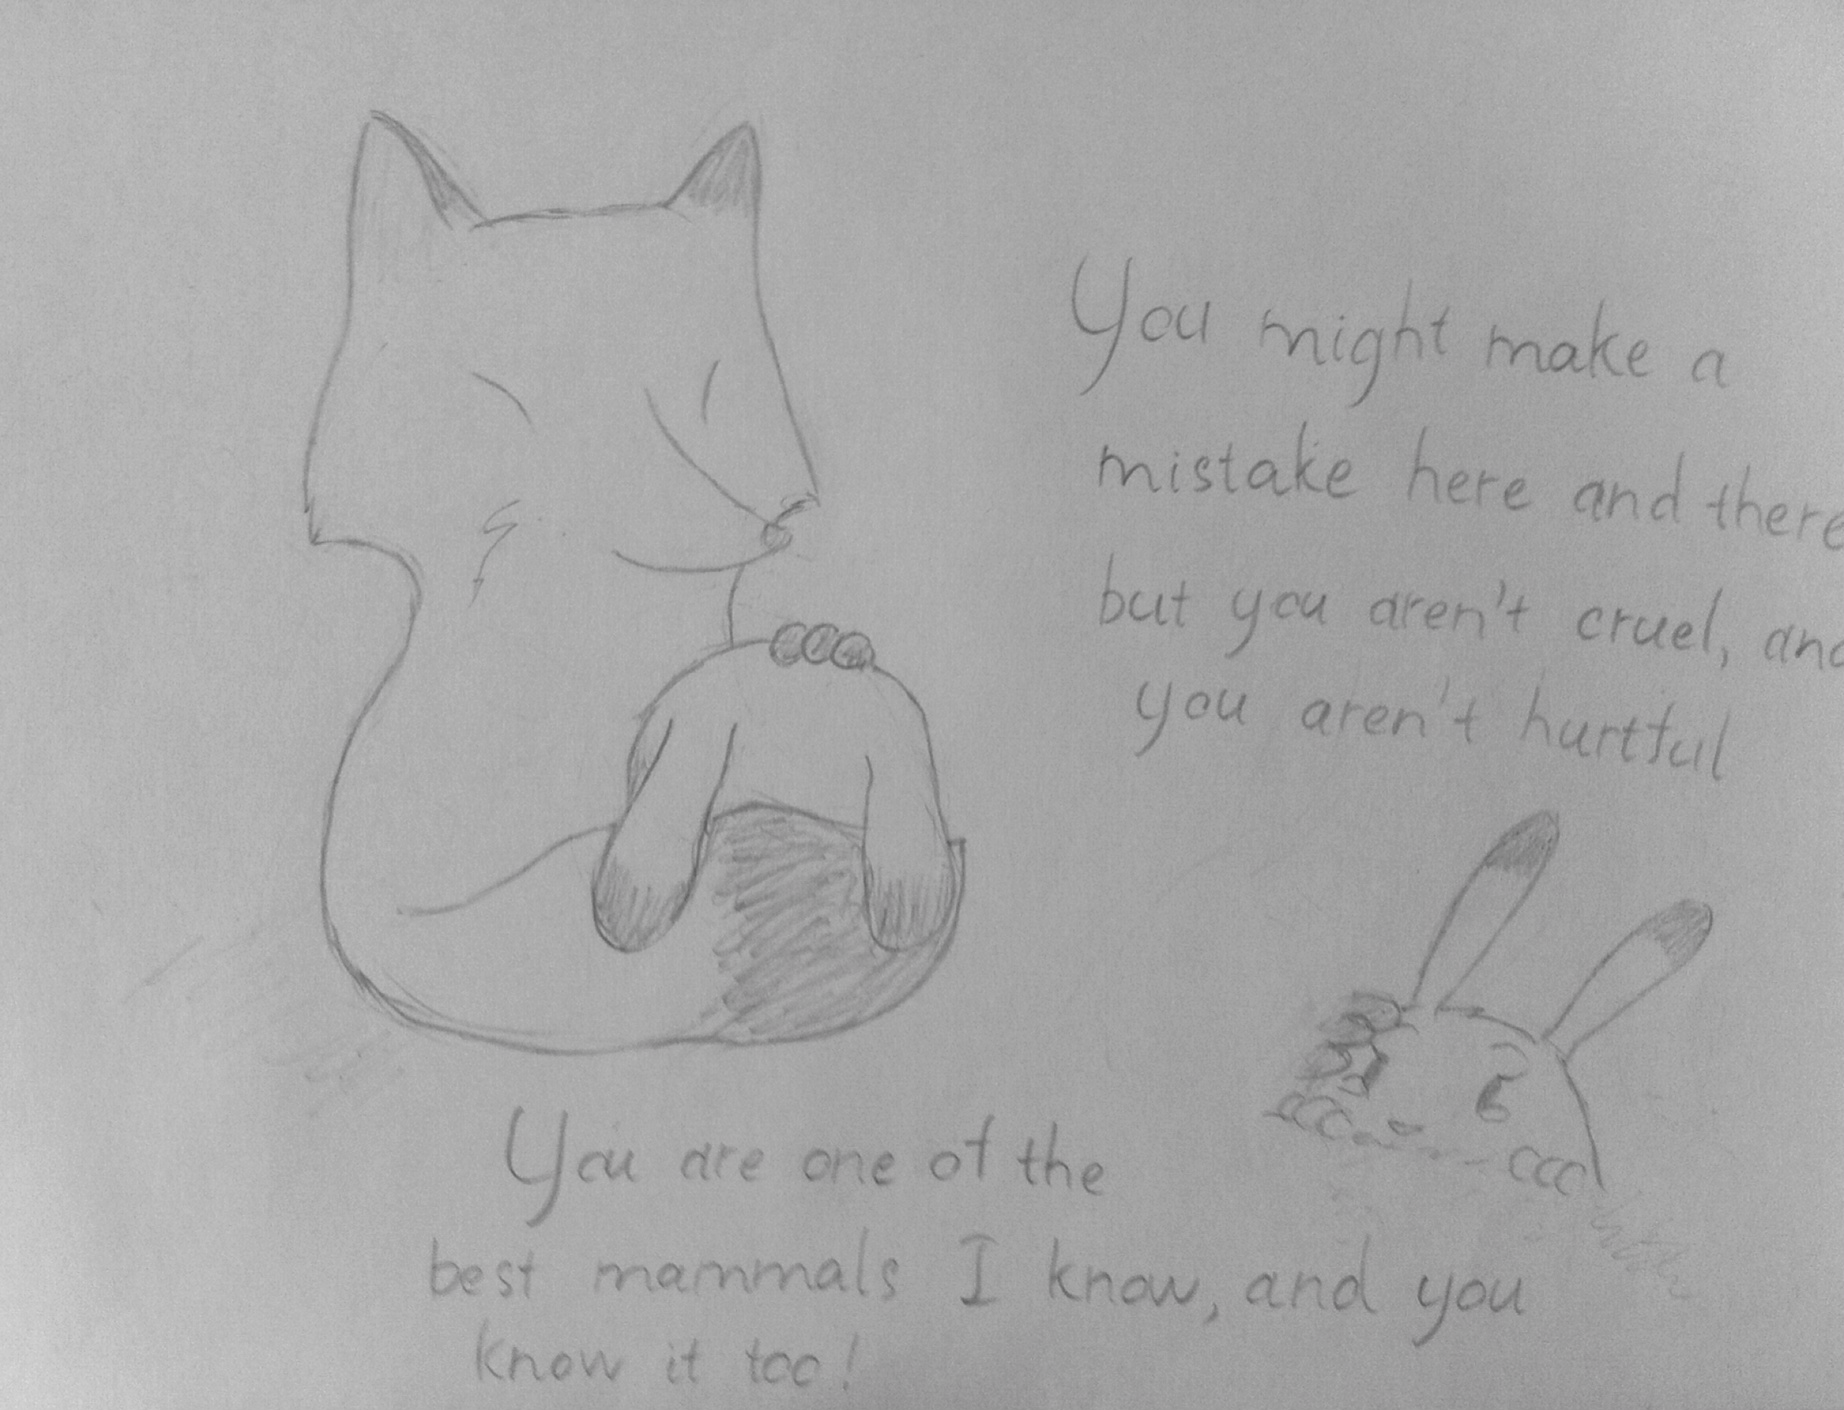 You might make a
mistake here and there
but you aren't cruel, and
you aren't hurtful
You are one of the
best mammals I know, and you
know it too!